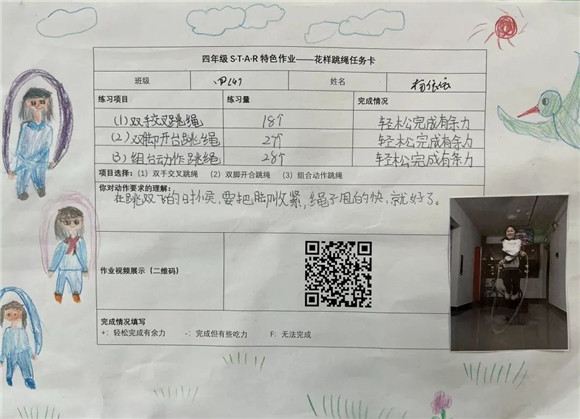 四年级 S·T·A·R 特色作业——花样跳绳任务卡
班级 四(4) 姓名 杨依依
练习项目 练习量 完成情况
(1) 双手交叉跳绳 18个 轻松完成有余力
(2) 双脚开合跳绳 27个 轻松完成有余力
(3) 组合动作跳绳 28个 轻松完成有余力
项目选择: (1) 双手交叉跳绳 (2) 双脚开合跳绳 (3) 组合动作跳绳
你对动作要求的理解:
在跳双飞的时候,要把脚收紧,绳子甩的快,就好了。
作业视频展示(二维码)
完成情况填写
+: 轻松完成有余力 -: 完成但有些吃力 F: 无法完成